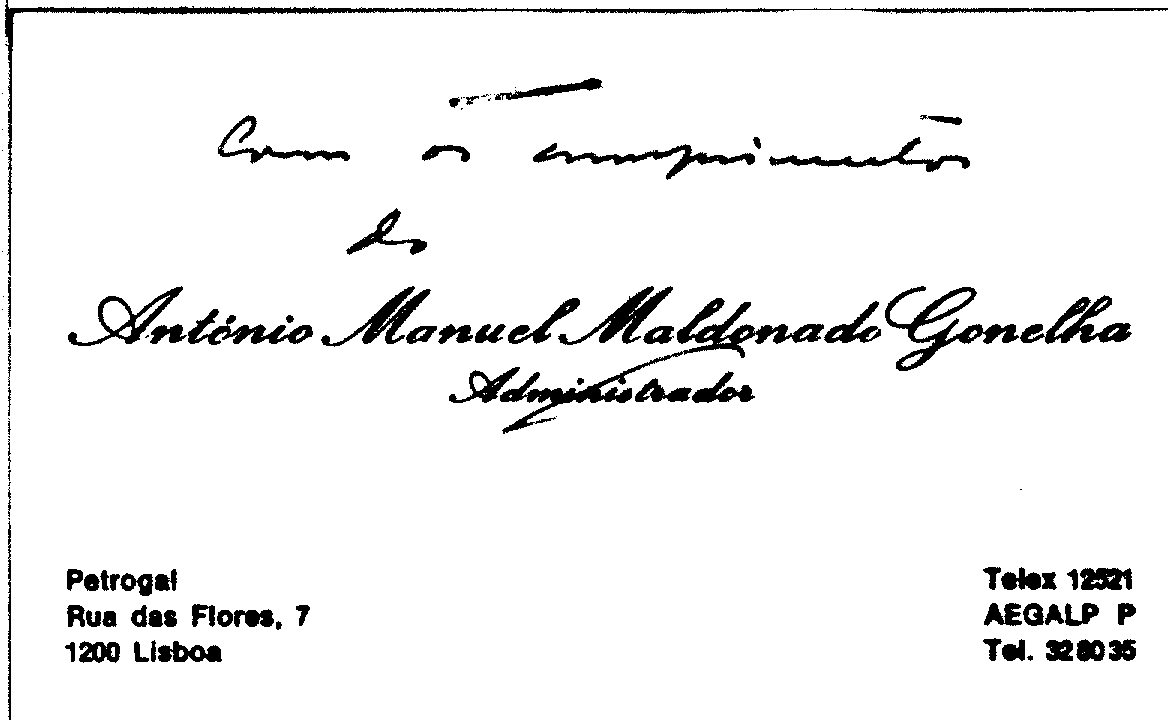 Com os cumprimentos
do
António Manuel Maldonado Gonelha
Administrador
Petrogal
Rua das Flores, 7
1200 Lisboa
Telex 12521
AEGALP P
Tel. 328035